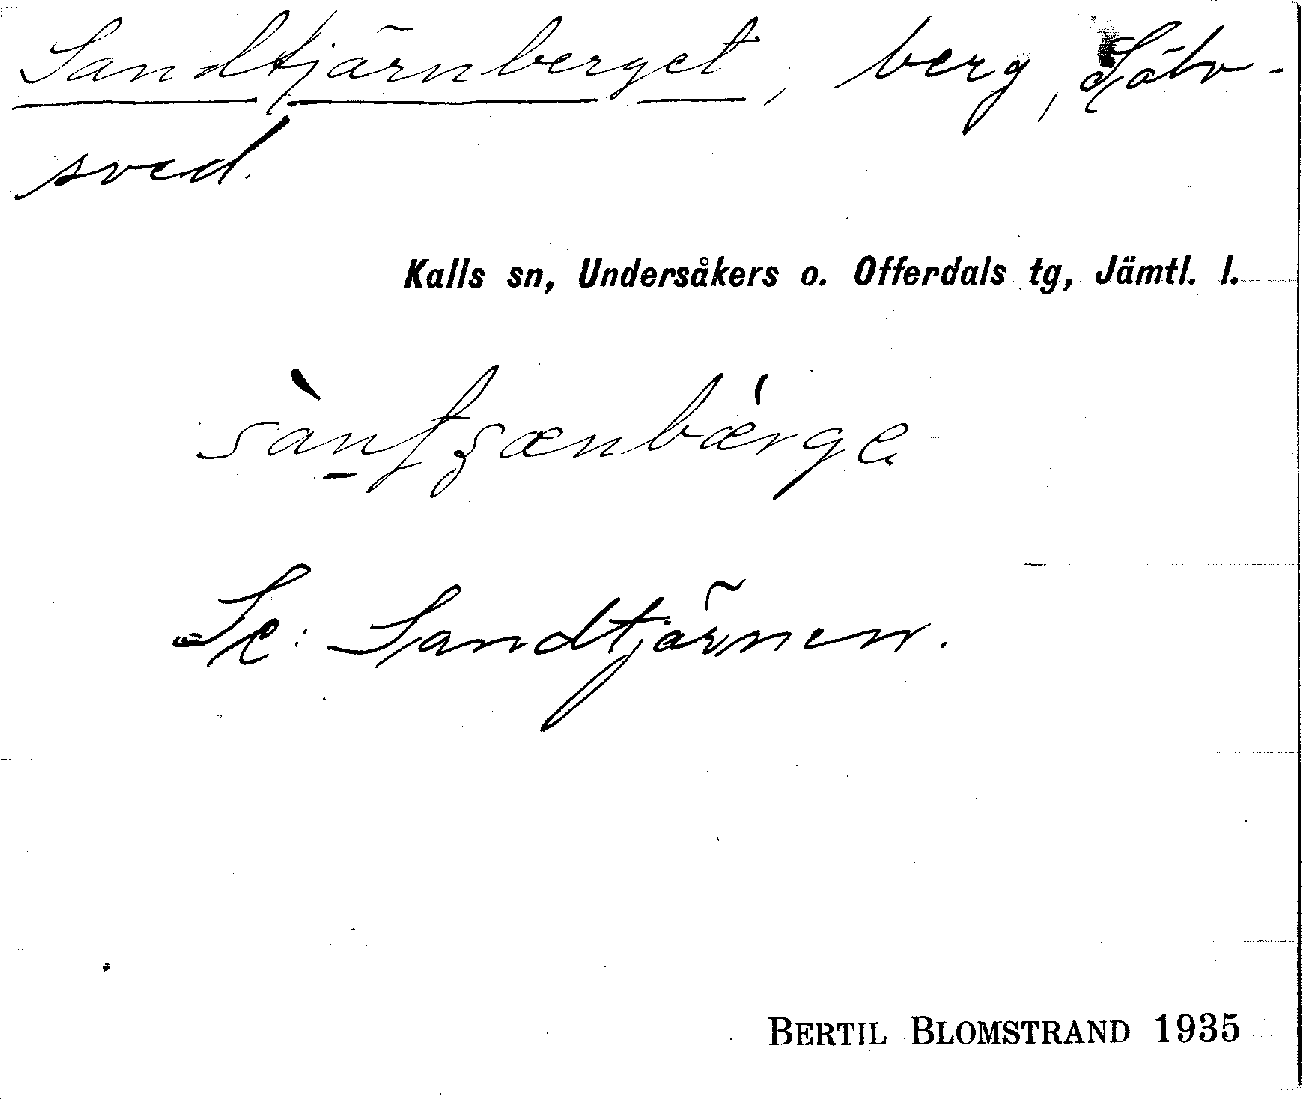 Sandtjärnberget, berg, Lätv-
sved.
Kalls sn, Undersåkers o. Offerdals tg, Jämtl. l.
Se: Sandtjärnen.
BERTIL BLOMSTRAND 1935